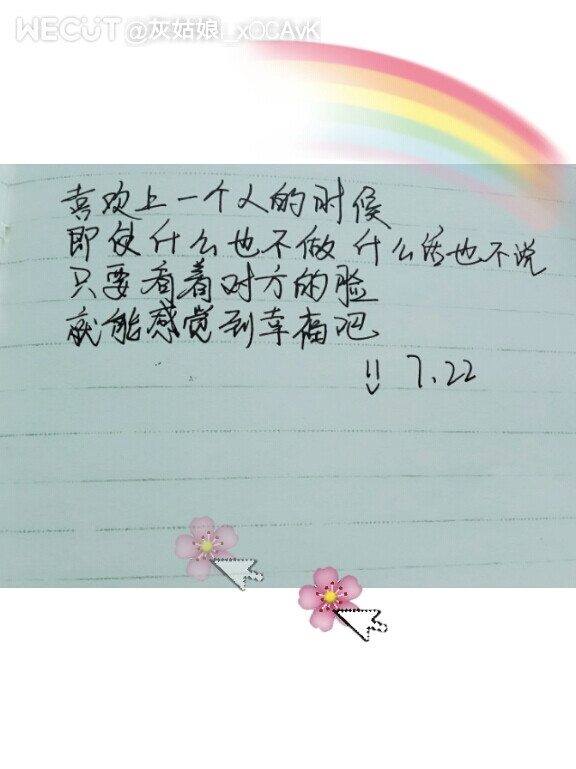 WECUT @灰姑娘i_xOCAvK
喜欢上一个人的时候
即使什么也不做 什么话也不说
只要看着对方的脸
就能感觉到幸福吧
7.22